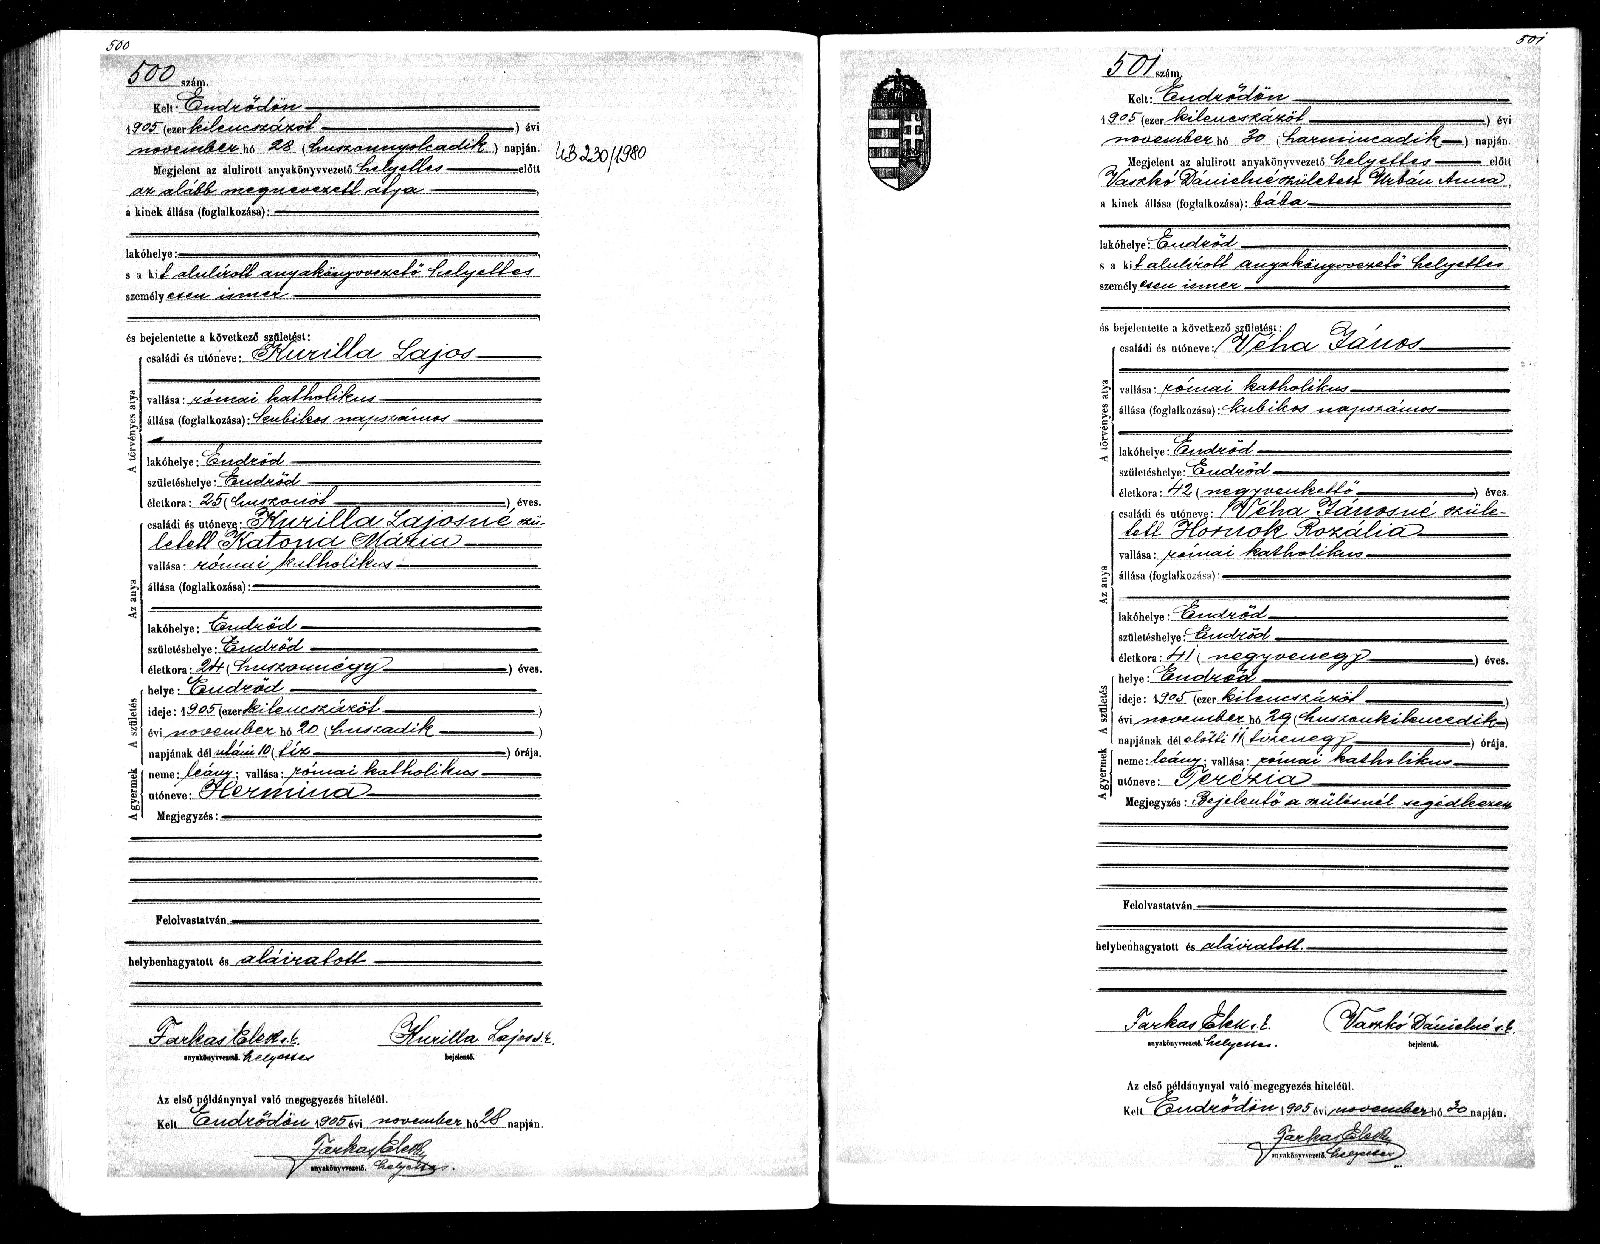 500
500 szám.
Kelt: Endrődön
1905 (ezer kilenczszázöt) évi
november hó 28 (huszonnyolcadik) napján.
UB 230/1980
Megjelent az alulirott anyakönyvvezető helyettes előtt
az alább megnevezett atya
a kinek állása (foglalkozása):
lakóhelye:
s a kit alulirott anyakönyvvezető helyettes
személyesen ismer
és bejelentette a következő születést:
A törvényes atya
családi és utóneve: Kurilla Lajos
vallása: római katholikus
állása (foglalkozása): kubikos napszámos
lakóhelye: Endrőd
születéshelye: Endrőd
életkora: 25 (huszonöt) éves.
Az anya
családi és utóneve: Kurilla Lajosné szü-
letett Katona Mária
vallása: római katholikus
állása (foglalkozása):
lakóhelye: Endrőd
születéshelye: Endrőd
életkora: 24 (huszonnégy) éves.
A születés
helye: Endrőd
ideje: 1905 (ezer kilenczszázöt)
évi november hó 20 (huszadik)
napjának dél utáni 10 (tíz) órája.
A gyermek
neme: leány; vallása: római katholikus
utóneve: Hermina
Megjegyzés:
Felolvastatván
helybenhagyatott és aláiratott
Farkas Elek s.k.
anyakönyvvezető helyettes
Kurilla Lajos s.k.
bejelentő.
Az első példánynyal való megegyezés hiteléül.
Kelt Endrődön 1905 évi november hó 28 napján.
Farkas Elek
anyakönyvvezető. helyettes.
501
501 szám.
Kelt: Endrődön
1905 (ezer kilenczszázöt) évi
november hó 30 (harmincadik) napján.
Megjelent az alulirott anyakönyvvezető helyettes előtt
Vaszkó Dánielné született Urbán Anna,
a kinek állása (foglalkozása): bába
lakóhelye: Endrőd
s a kit alulirott anyakönyvvezető helyettes
személyesen ismer
és bejelentette a következő születést:
A törvényes atya
családi és utóneve: Véha János
vallása: római katholikus
állása (foglalkozása): kubikos napszámos
lakóhelye: Endrőd
születéshelye: Endrőd
életkora: 42 (negyvenkettő) éves.
Az anya
családi és utóneve: Véha Jánosné szüle-
tett Hornok Rozália
vallása: római katholikus
állása (foglalkozása):
lakóhelye: Endrőd
születéshelye: Endrőd
életkora: 41 (negyvenegy) éves.
A születés
helye: Endrőd
ideje: 1905 (ezer kilenczszázöt)
évi november hó 29 (huszonkilencedik)
napjának dél előtti 11 (tizenegy) órája.
A gyermek
neme: leány; vallása: római katholikus
utóneve: Terézia
Megjegyzés: Bejelentő a szülésnél segédkezett
Felolvastatván
helybenhagyatott és aláiratott.
Farkas Elek s.k.
anyakönyvvezető. helyettes.
Vaszkó Dánielné s.k.
bejelentő.
Az első példánynyal való megegyezés hiteléül.
Kelt Endrődön 1905 évi november hó 30 napján.
Farkas Elek
anyakönyvvezető. helyettes